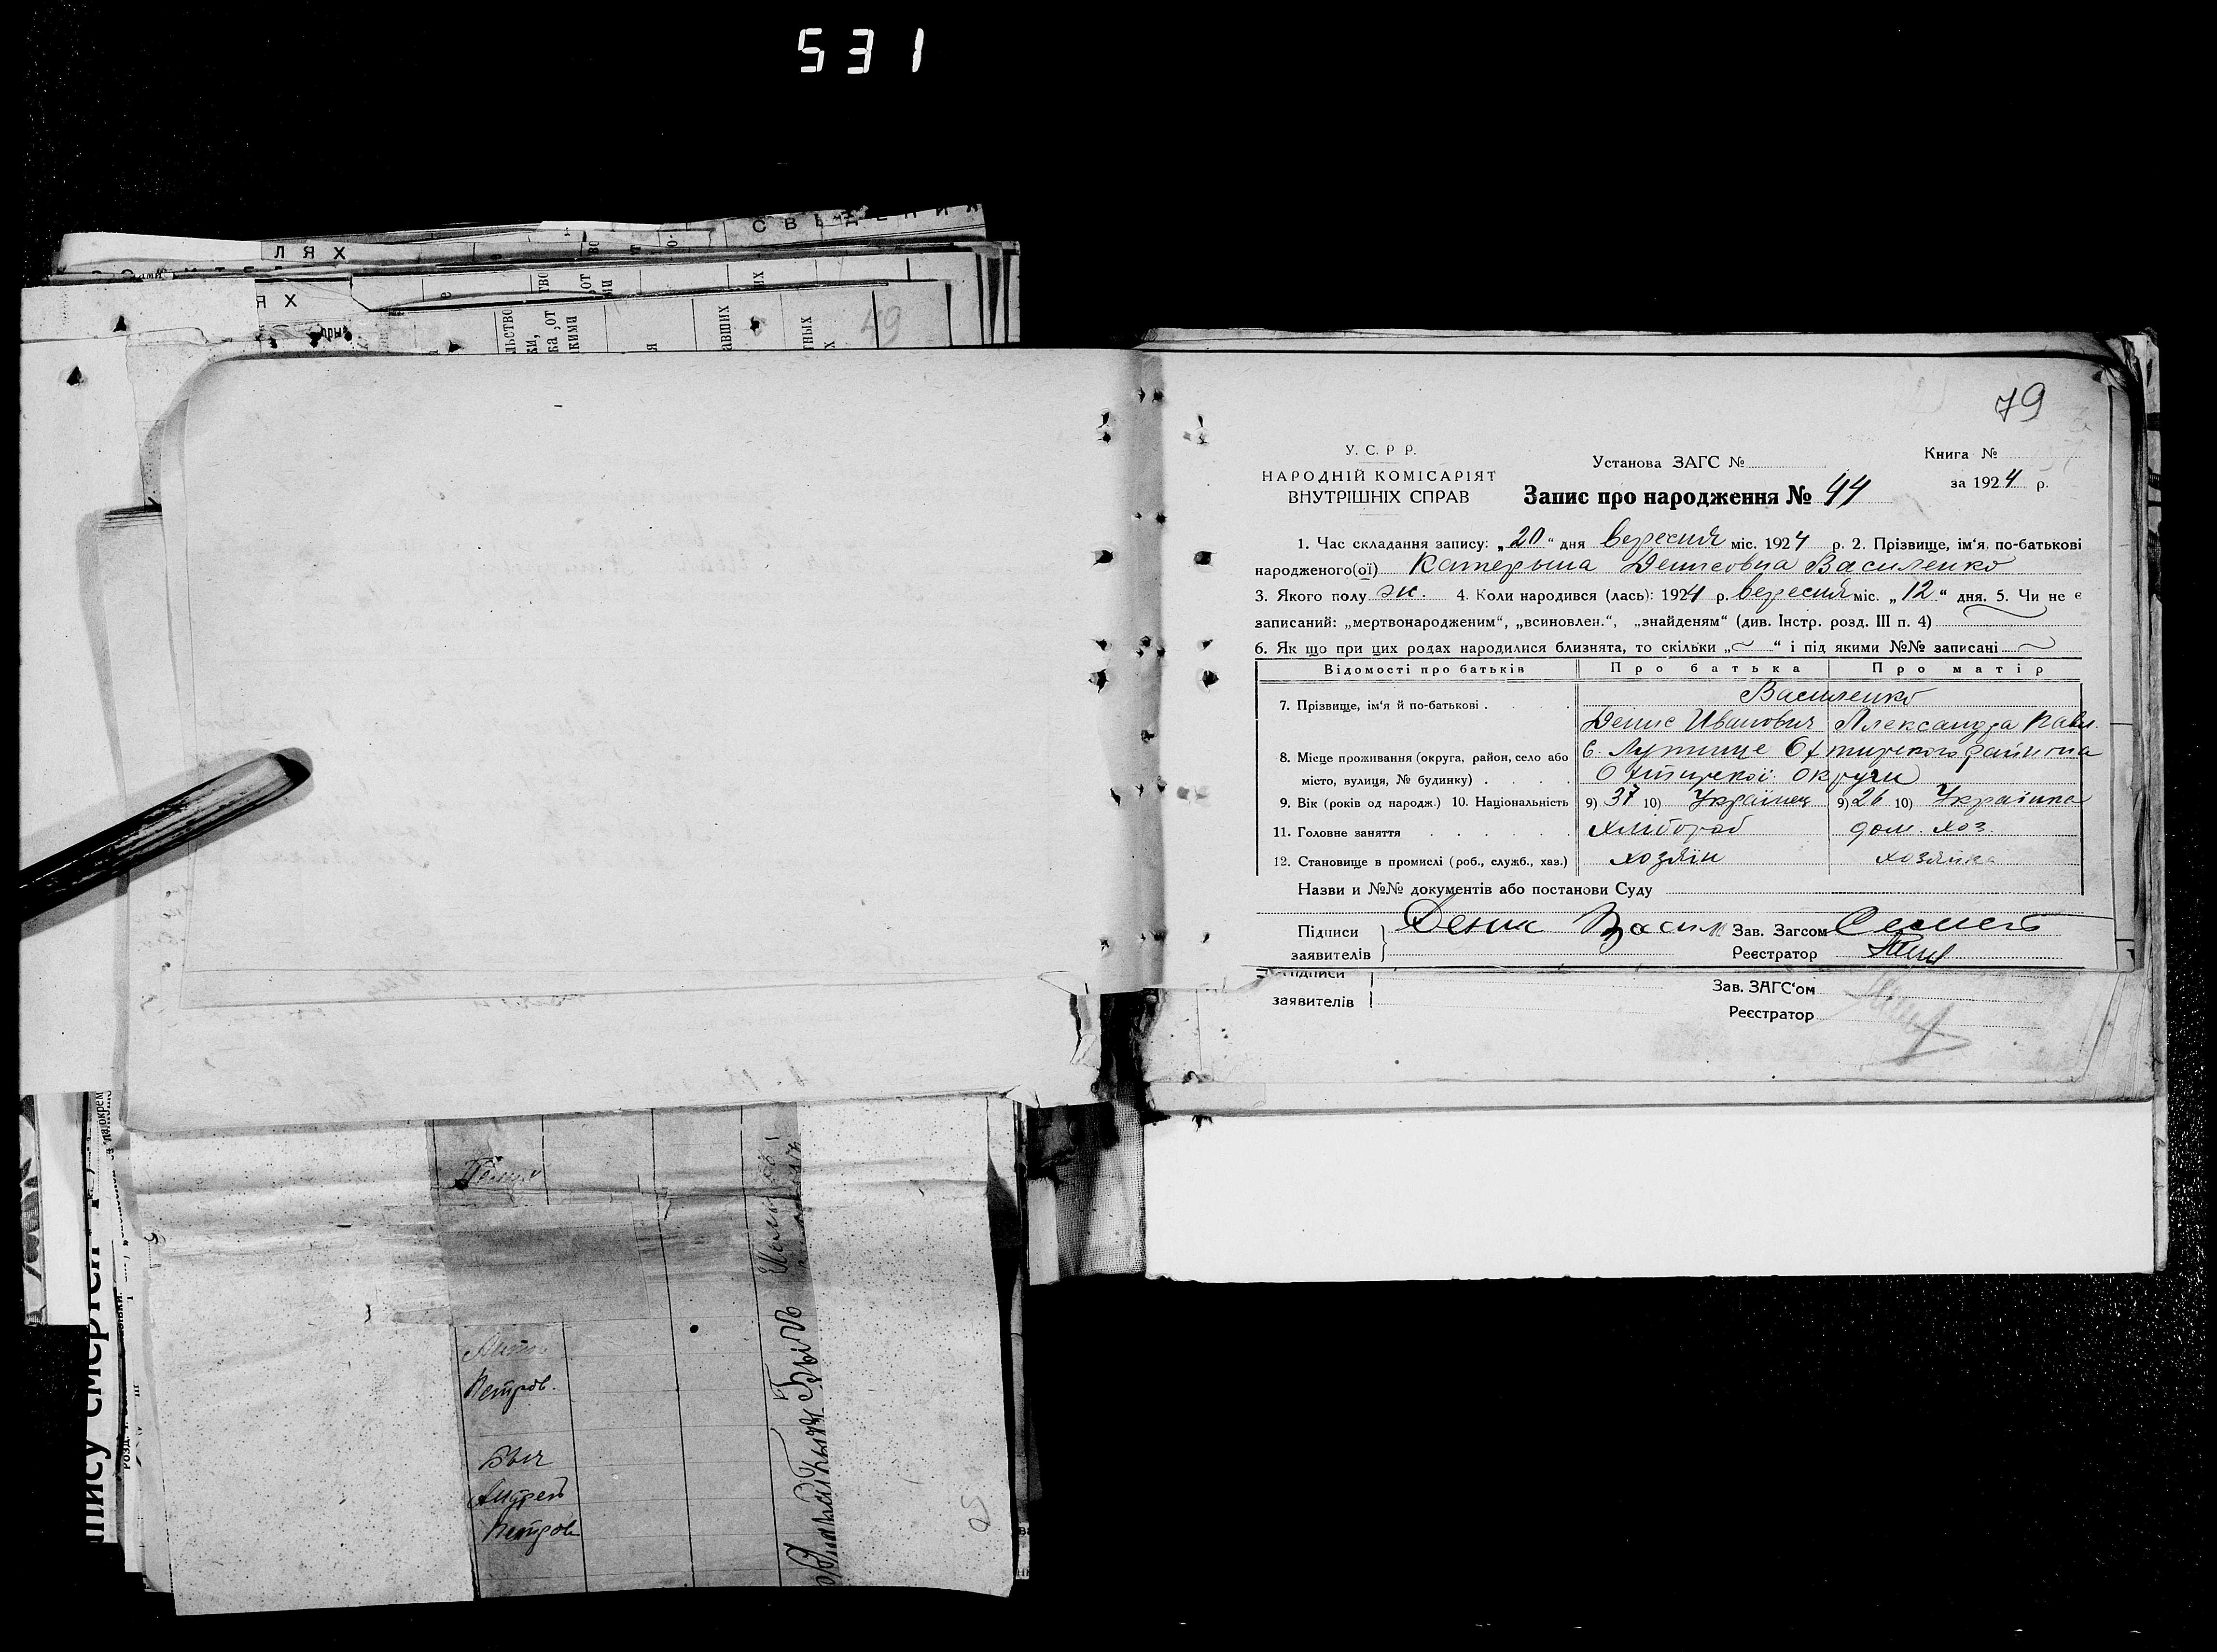 531
С В Ѣ Д Е Н И Я
Л Я Х
Я Х
льство
авших
тных
49
79
У. С. Р Р.
НАРОДНІЙ КОМІСАРІЯТ
ВНУТРІШНІХ СПРАВ
Установа ЗАГС №
Книга №
Запис про народження № 44
за 1924 р.
1. Час складання запису: „20“ дня вересня міс. 1924 р. 2. Прізвище, ім‘я, по-батькові
народженого(ої) Катерына Денисовна Василенко
3. Якого полу ж. 4. Коли народився (лась): 1924 р. вересня міс. „12“ дня. 5. Чи не є
записаний: „мертвонародженим“, „всиновлен.“, „знайденям“ (див. Інстр. розд. III п. 4)
6. Як що при цих родах народилися близнята, то скільки „~“ і під якими №№ записані ~
Відомості про батьків Про батька Про матір
Василенко
7. Прізвище, ім‘я й по-батькові . . . .
Денис Иванович Александра Павл.
8. Місце проживання (округа, район, село або
місто, вулиця, № будинку) . . . .
с. Лутище Охтирского району
Охтирскоі округи
9. Вік (років од народж.) 10. Національність 9) 37 10) Українец 9) 26 10) Українка
11. Головне заняття . . . . . хлібороб дом. хоз.
12. Становище в промислі (роб., служб., хаз.) хозяїн хозяйка
Назви и №№ документів або постанови Суду
Підписи
заявителів
Денис Васил
Зав. Загсом
Реєстратор
підписи
заявителів
Зав. ЗАГС‘ом
Реєстратор
Петров.
Быч
Андрей
Петров